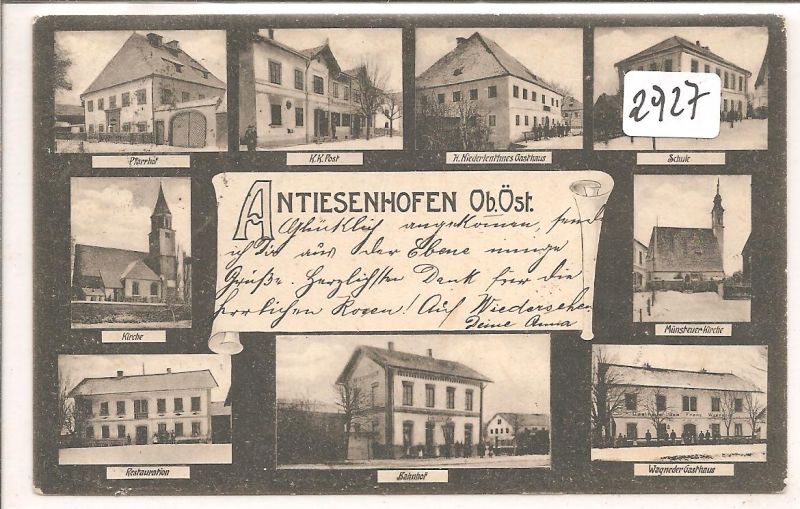 2927
Pfarrhof
K.K. Post
H. Niederlenthnes Gasthaus
Schule
ANTIESENHOFEN Ob. Öst.
Glücklich angekommen, sende
ich Dir aus der Ebene innige
Grüße. Herzlichsten Dank für die
herrlichen Rosen! Auf Wiedersehen
Deine Anna
Kirche
Münsteuer Kirche
Restauration
Bahnhof
Wagneder Gasthaus